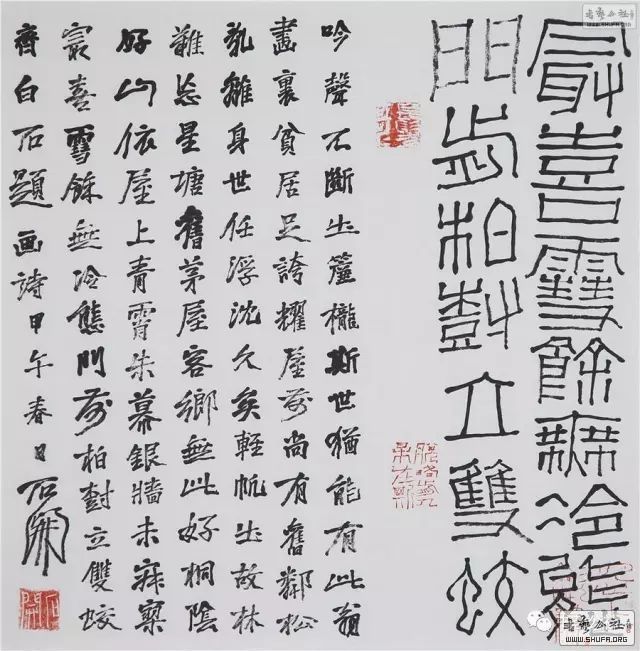 最喜雪餘無冷態
門前柏樹立雙蛟
吟聲不斷出簾櫳斯世猶能有此翁
畫裏貧居足誇耀屋前尚有舊鄰松
乱離身世任浮沈久矣輕帆出故林
難忘星塘舊茅屋客鄉無此好桐陰
好山依屋上青霄朱幕銀牆未寂寥
最喜雪餘無冷態門前柏樹立雙蛟
齊白石題画詩甲午春日石開
書法公社
WWW.SHUFA.ORG